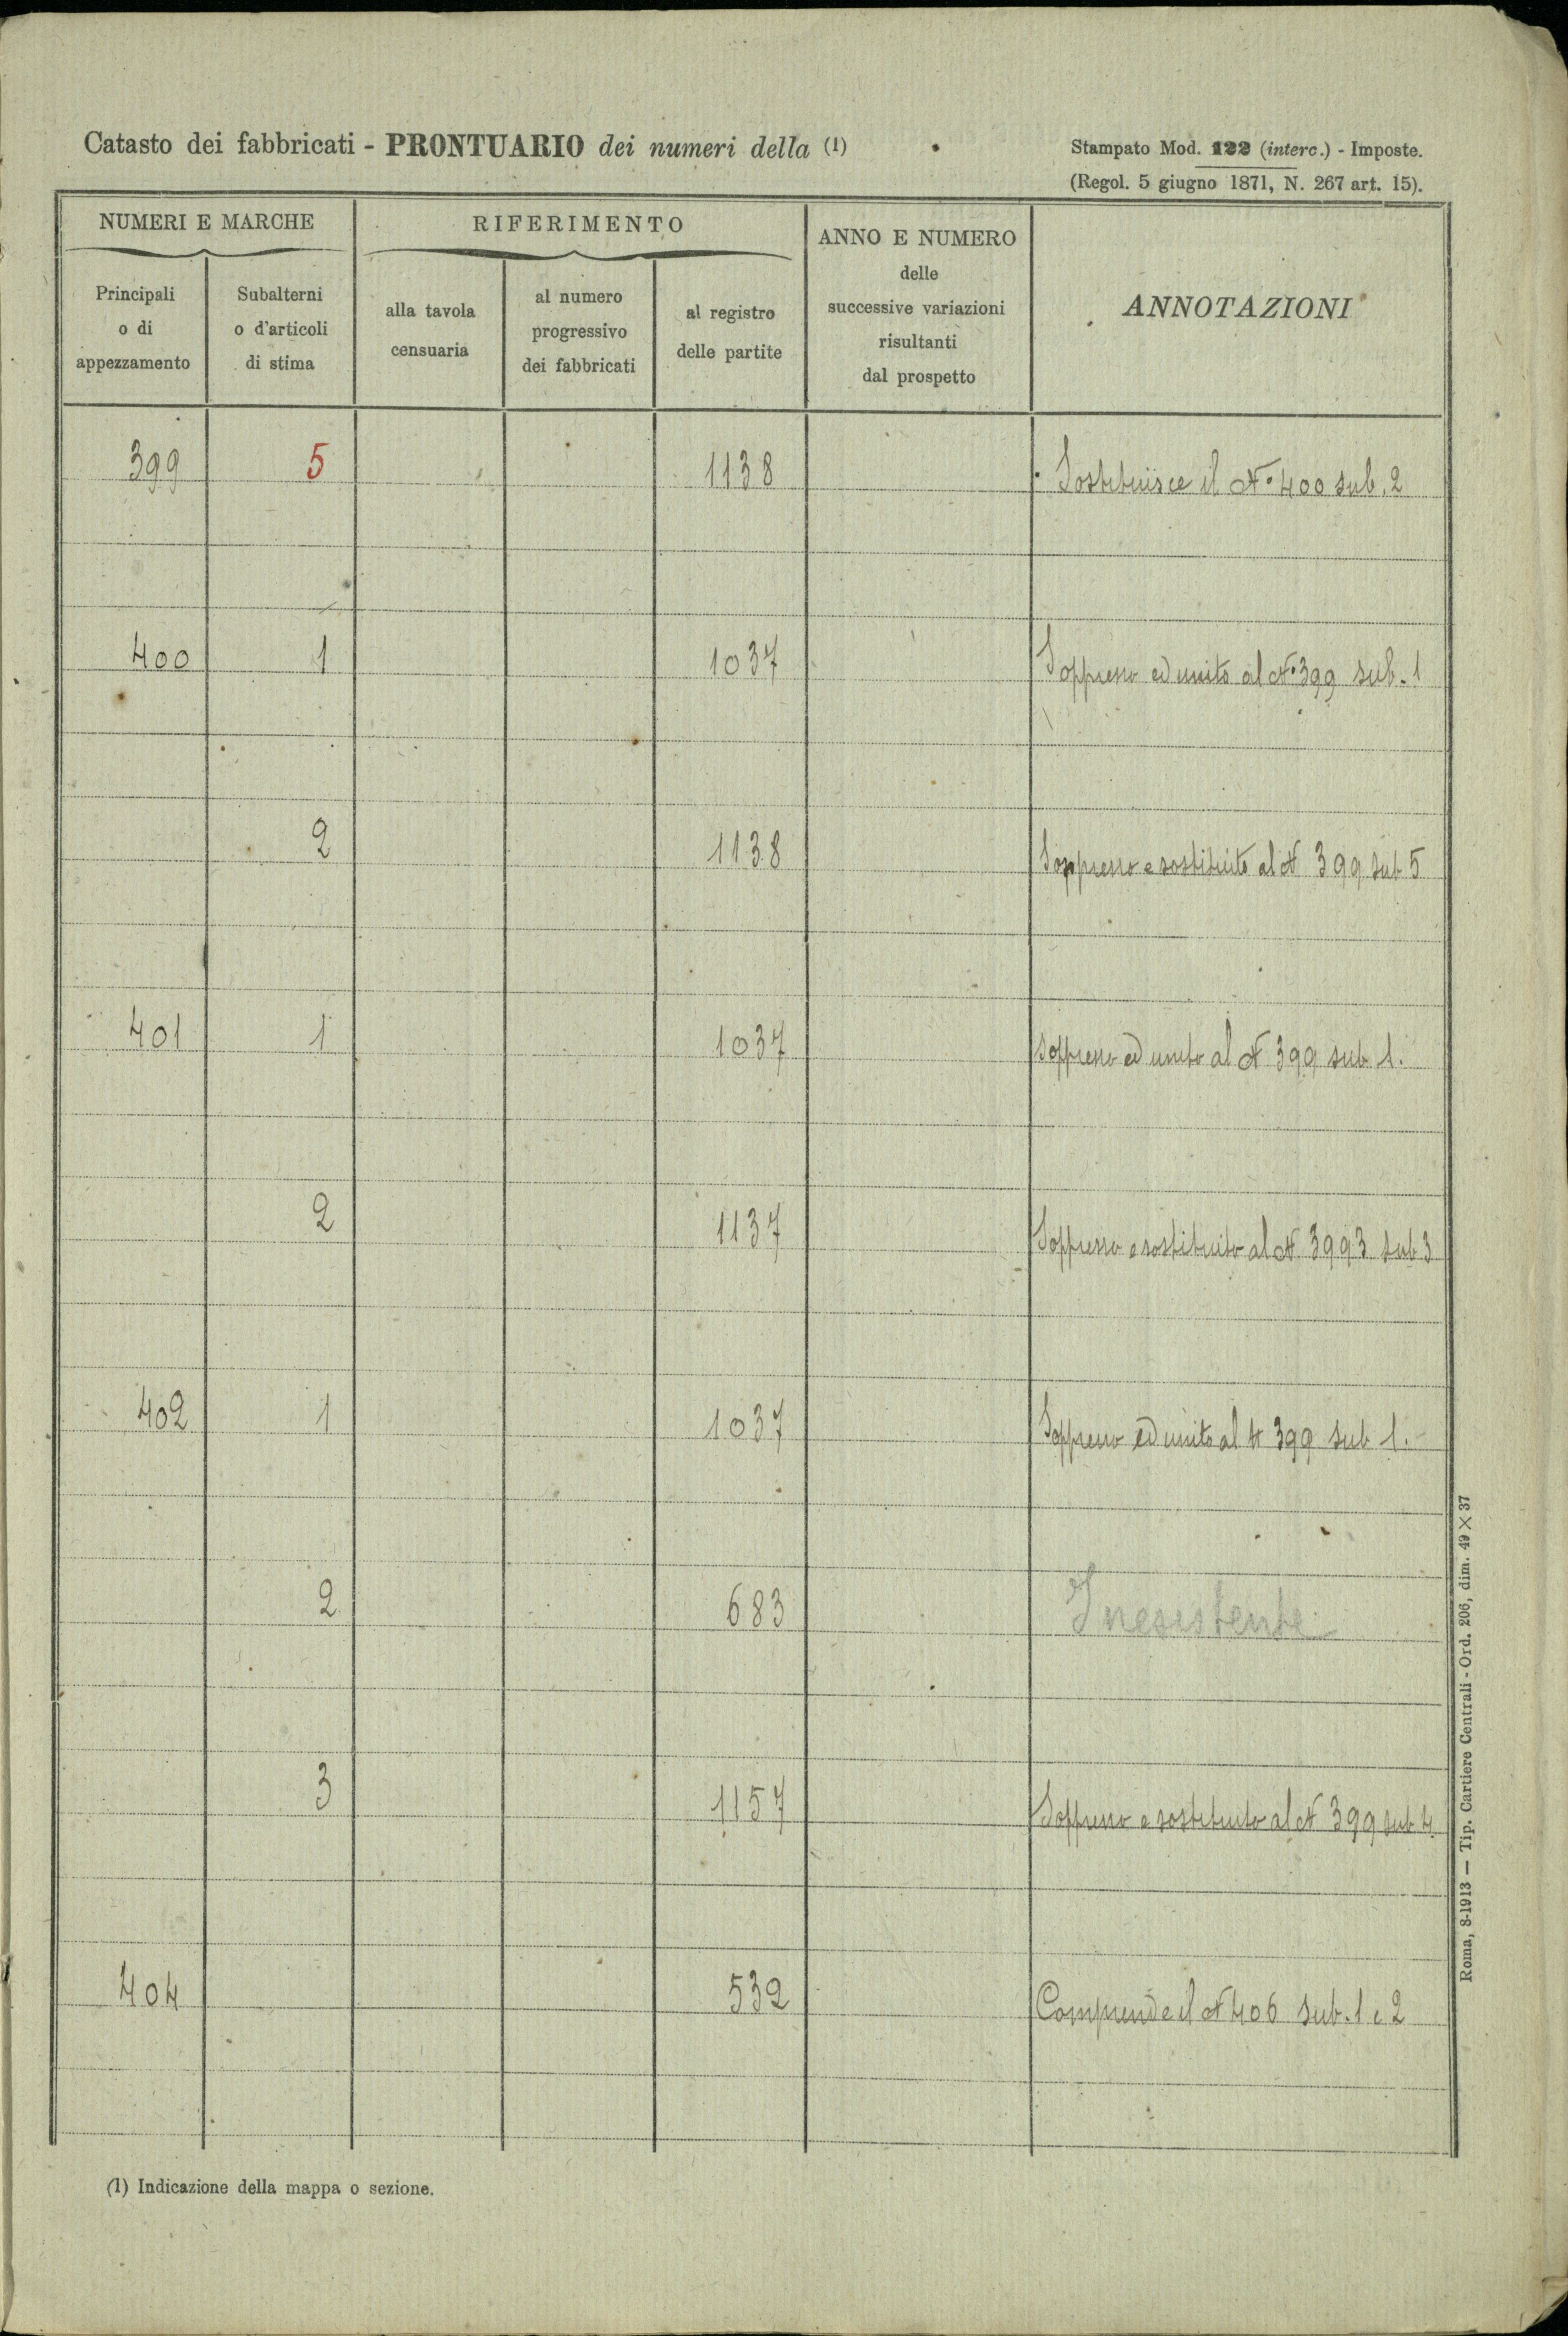 Catasto dei fabbricati - PRONTUARIO dei numeri della (1)
Stampato Mod. 122 (interc.) - Imposte.
(Regol. 5 giugno 1871, N. 267 art. 15).
NUMERI E MARCHE
RIFERIMENTO
ANNO E NUMERO
delle
successive variazioni
risultanti
dal prospetto
ANNOTAZIONI
Principali
o di
appezzamento
Subalterni
o d'articoli
di stima
alla tavola
censuaria
al numero
progressivo
dei fabbricati
al registro
delle partite
399 5 1138 Sostituisce il N. 400 sub. 2
400 1 1037 Soppresso ed unito al N. 399 sub. 1
2 1138 Soppresso e sostituito al N 399 sub 5
401 1 1037 Soppresso ed unito al N 399 sub 1.
2 1137 Soppresso e sostituito al N 3993 sub 3
402 1 1037 Soppresso ed unito al N 399 sub 1.
2 683 Inesistente
3 1157 Soppresso e sostituito al N 399 sub 4
404 532 Comprende il N 406 sub. 1 e 2
(1) Indicazione della mappa o sezione.
Roma, 8-1913 — Tip. Cartiere Centrali - Ord. 206, dim. 49 × 37